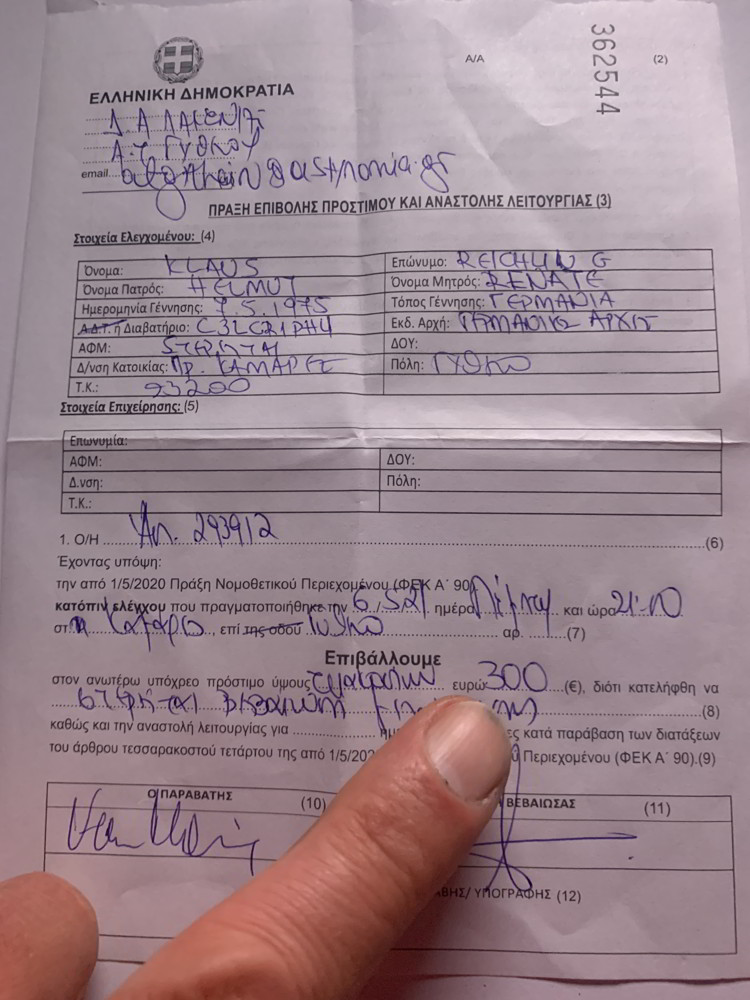 362544
Α/Α (2)
ΕΛΛΗΝΙΚΗ ΔΗΜΟΚΡΑΤΙΑ
Δ.Α ΛΑΚΩΝΙΑΣ
Α.Τ ΓΥΘΕΙΟΥ
email.... @astynomia.gr
ΠΡΑΞΗ ΕΠΙΒΟΛΗΣ ΠΡΟΣΤΙΜΟΥ ΚΑΙ ΑΝΑΣΤΟΛΗΣ ΛΕΙΤΟΥΡΓΙΑΣ (3)
Στοιχεία Ελεγχομένου: (4)
Όνομα: KLAUS Επώνυμο: REICHLING
Όνομα Πατρός: HELMUT Όνομα Μητρός: RENATE
Ημερομηνία Γέννησης: 7.5.1975 Τόπος Γέννησης: ΓΕΡΜΑΝΙΑ
Α.Δ.Τ. ή Διαβατήριο: Εκδ. Αρχή: ΓΕΡΜΑΝΙΚΕΣ ΑΡΧΕΣ
ΑΦΜ: ΣΤΕΡΕΙΤΑΙ ΔΟΥ:
Δ/νση Κατοικίας: ΠΡ. ΚΑΜΑΡΕΣ Πόλη: ΓΥΘΕΙΟ
Τ.Κ.: 23200
Στοιχεία Επιχείρησης: (5)
Επωνυμία:
ΑΦΜ: ΔΟΥ:
Δ.νση: Πόλη:
Τ.Κ.:
1. Ο/Η 293912 (6)
Έχοντας υπόψη:
την από 1/5/2020 Πράξη Νομοθετικού Περιεχομένου (ΦΕΚ Α΄ 90
κατόπιν ελέγχου που πραγματοποιήθηκε την 6/5/21 ημέρα Πέμπτη και ώρα 21:10
στ , επί της οδού Γύθειο αρ. (7)
Επιβάλλουμε
στον ανωτέρω υπόχρεο πρόστιμο ύψους τριακοσίων ευρώ 300 (€), διότι κατελήφθη να
(8)
καθώς και την αναστολή λειτουργίας για ες κατά παράβαση των διατάξεων
του άρθρου τεσσαρακοστού τετάρτου της από 1/5/202 ύ Περιεχομένου (ΦΕΚ Α΄ 90).(9)
Ο ΠΑΡΑΒΑΤΗΣ (10) ΒΕΒΑΙΩΣΑΣ (11)
ΒΗΣ/ ΥΠΟΓΡΑΦΗΣ (12)